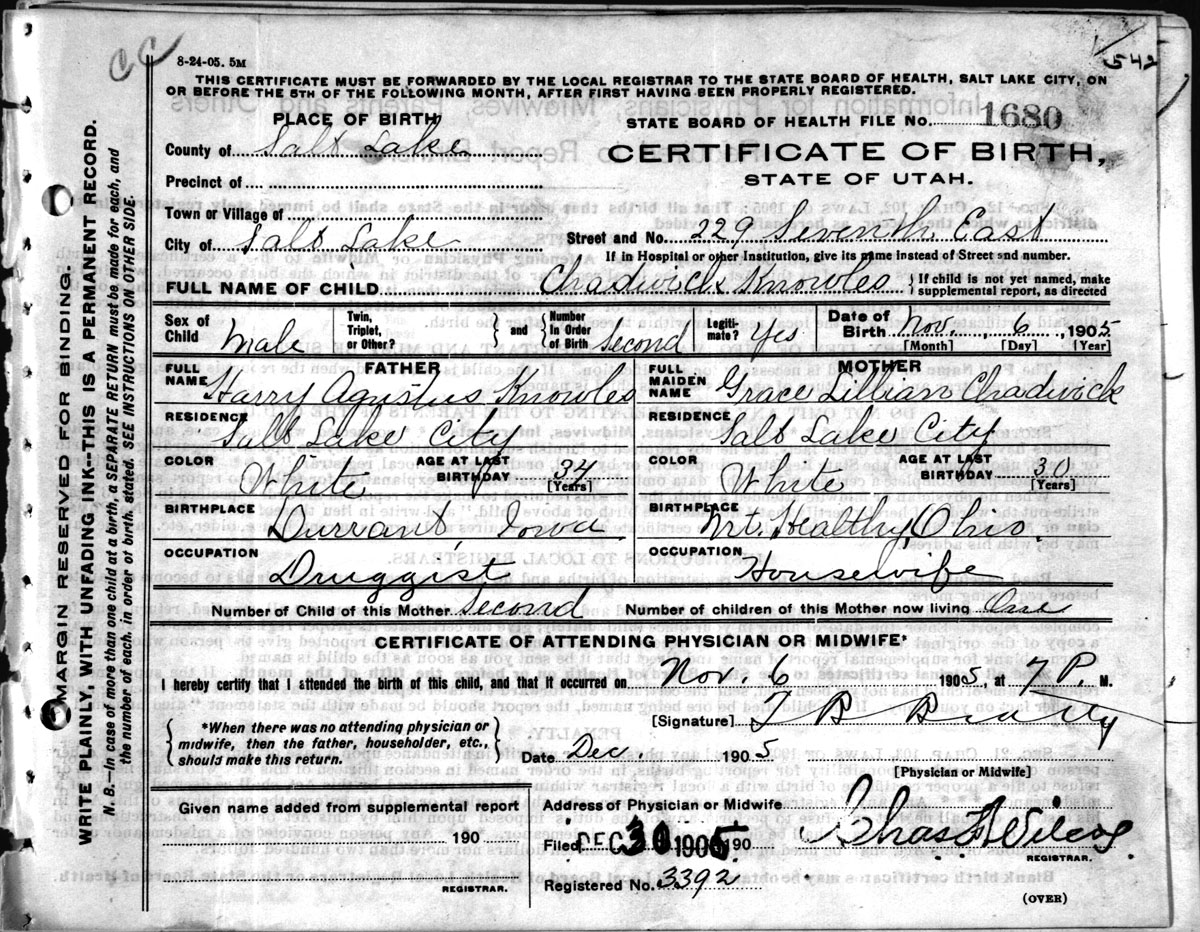 CC
8-24-05. 5M
542
THIS CERTIFICATE MUST BE FORWARDED BY THE LOCAL REGISTRAR TO THE STATE BOARD OF HEALTH, SALT LAKE CITY, ON
OR BEFORE THE 5TH OF THE FOLLOWING MONTH, AFTER FIRST HAVING BEEN PROPERLY REGISTERED.
PLACE OF BIRTH
STATE BOARD OF HEALTH FILE NO. 1680
County of Salt Lake
CERTIFICATE OF BIRTH,
Precinct of
STATE OF UTAH.
Town or Village of
City of Salt Lake Street and No. 229 Seventh East
If in Hospital or other Institution, give its name instead of Street and number.
FULL NAME OF CHILD Chadwick Knowles { If child is not yet named, make supplemental report, as directed
Sex of Child Male Twin, Triplet, or Other? } and { Number In Order of Birth Second Legiti-mate? Yes Date of Birth Nov. 6 1905
[Month] [Day] [Year]
FATHER MOTHER
FULL NAME Harry Agustus Knowles FULL MAIDEN NAME Grace Lillian Chadwick
RESIDENCE Salt Lake City RESIDENCE Salt Lake City
COLOR White AGE AT LAST BIRTHDAY 34 [Years] COLOR White AGE AT LAST BIRTHDAY 30 [Years]
BIRTHPLACE Durrant, Iowa BIRTHPLACE Mt. Healthy, Ohio.
OCCUPATION Druggist OCCUPATION Housewife
Number of Child of this Mother Second Number of children of this Mother now living One
CERTIFICATE OF ATTENDING PHYSICIAN OR MIDWIFE*
I hereby certify that I attended the birth of this child, and that it occurred on Nov. 6 1905 at 7 P. M.
{ *When there was no attending physician or midwife, then the father, householder, etc., should make this return. }
[Signature]
Date Dec. 1905
[Physician or Midwife]
Given name added from supplemental report
190
REGISTRAR.
Address of Physician or Midwife
Filed DEC 30 1905 190
Chas. Wilcox
REGISTRAR.
Registered No. 3392
(OVER)
MARGIN RESERVED FOR BINDING.
WRITE PLAINLY, WITH UNFADING INK--THIS IS A PERMANENT RECORD.
N. B.--In case of more than one child at a birth, a SEPARATE RETURN must be made for each, and
the number of each, in order of birth, stated. SEE INSTRUCTIONS ON OTHER SIDE.